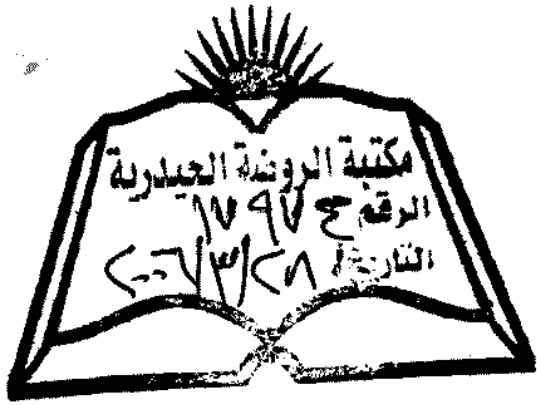 مكتبة الروضة الحيدرية
الرقم ع ١٧٩٧
التاريخ ٢٠٠٦/٣/٢٨